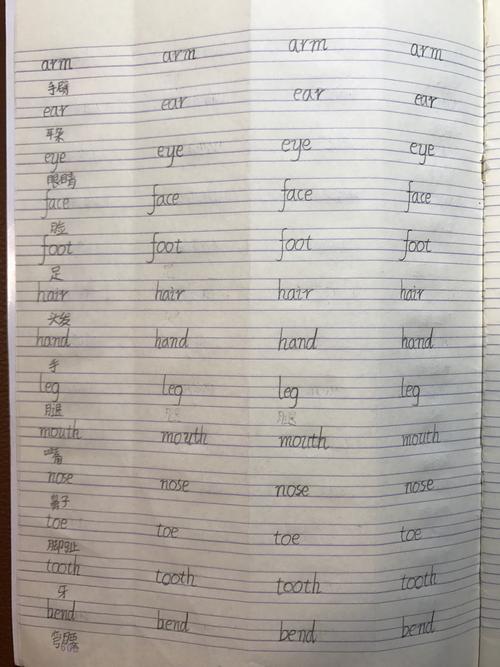 arm arm arm arm
手臂
ear ear ear ear
耳朵
eye eye eye eye
眼睛
face face face face
脸
foot foot foot foot
足
hair hair hair hair
头发
hand hand hand hand
手
leg leg leg leg
腿
mouth mouth mouth mouth
嘴
nose nose nose nose
鼻子
toe toe toe toe
脚趾
tooth tooth tooth tooth
牙
bend bend bend bend
弯腰